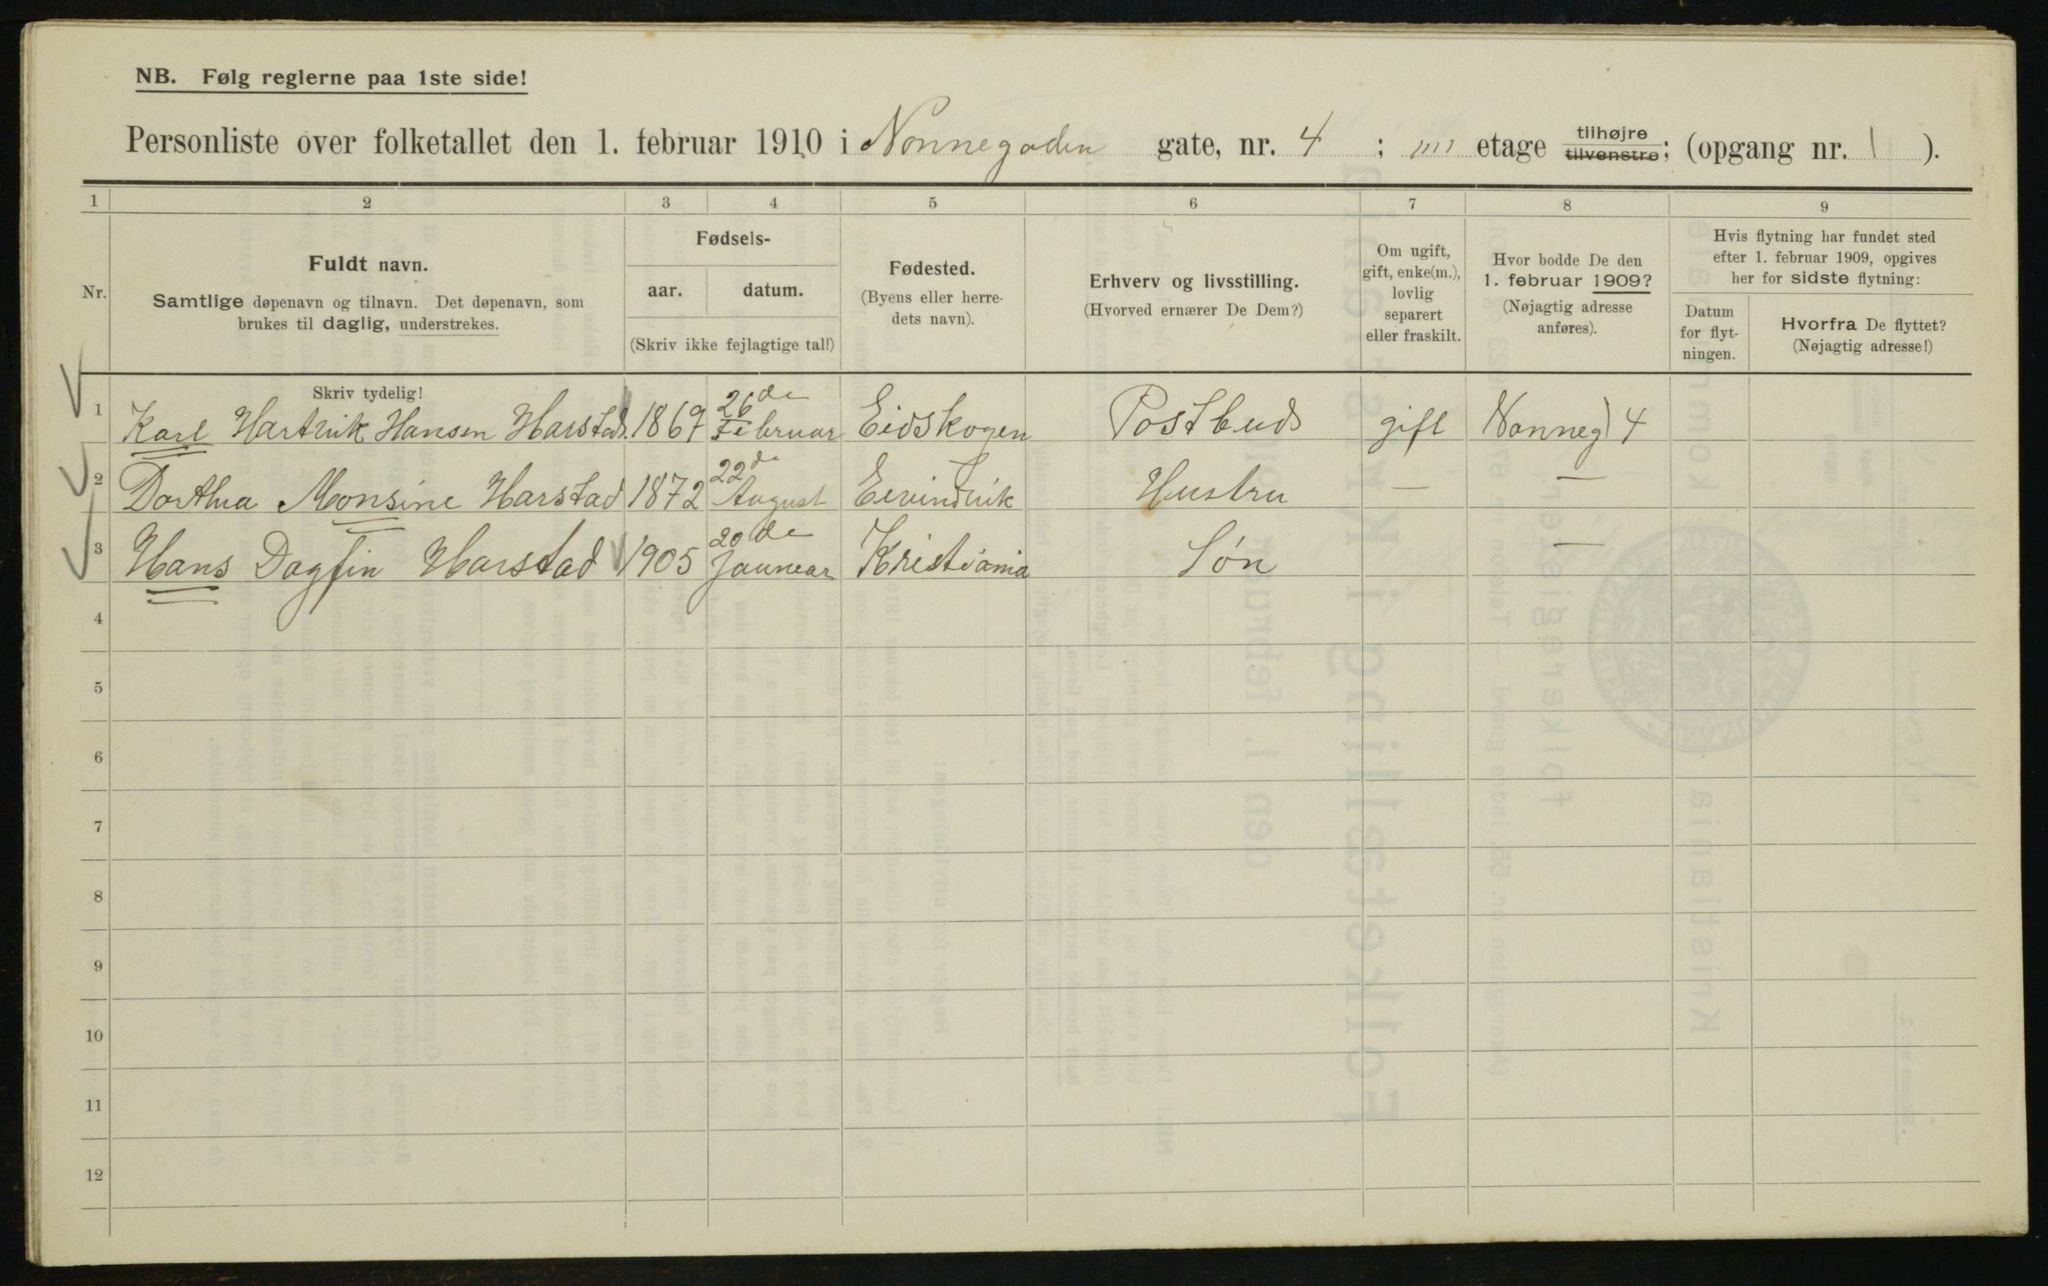 NB. Følg reglerne paa 1ste side!
Personliste over folketallet den 1. februar 1910 i Nonnegaden gate, nr. 4 ; IIII etage tilhøjre tilvenstre; (opgang nr. 1 ).
1 2 3 4 5 6 7 8 9
Nr.
Fuldt navn.
Samtlige døpenavn og tilnavn. Det døpenavn, som
brukes til daglig, understrekes.
Fødsels-
aar. datum.
(Skriv ikke fejlagtige tal!)
Fødested.
(Byens eller herre-
dets navn).
Erhverv og livsstilling.
(Hvorved ernærer De Dem?)
Om ugift,
gift, enke(m.),
lovlig
separert
eller fraskilt.
Hvor bodde De den
1. februar 1909?
(Nøjagtig adresse
anføres).
Hvis flytning har fundet sted
efter 1. februar 1909, opgives
her for sidste flytning:
Datum
for flyt-
ningen.
Hvorfra De flyttet?
(Nøjagtig adresse!)
Skriv tydelig!
1 Karl Hartvik Hansen Harstad 1867 26de Februar Eidskogen Postbud gift Nonneg 4
2 Dorthea Monsine Harstad 1872 22de August Eivindvik Hustru — —
3 Hans Dagfin Harstad 1905 20de Januear Kristiania Søn —
4
5
6
7
8
9
10
11
12